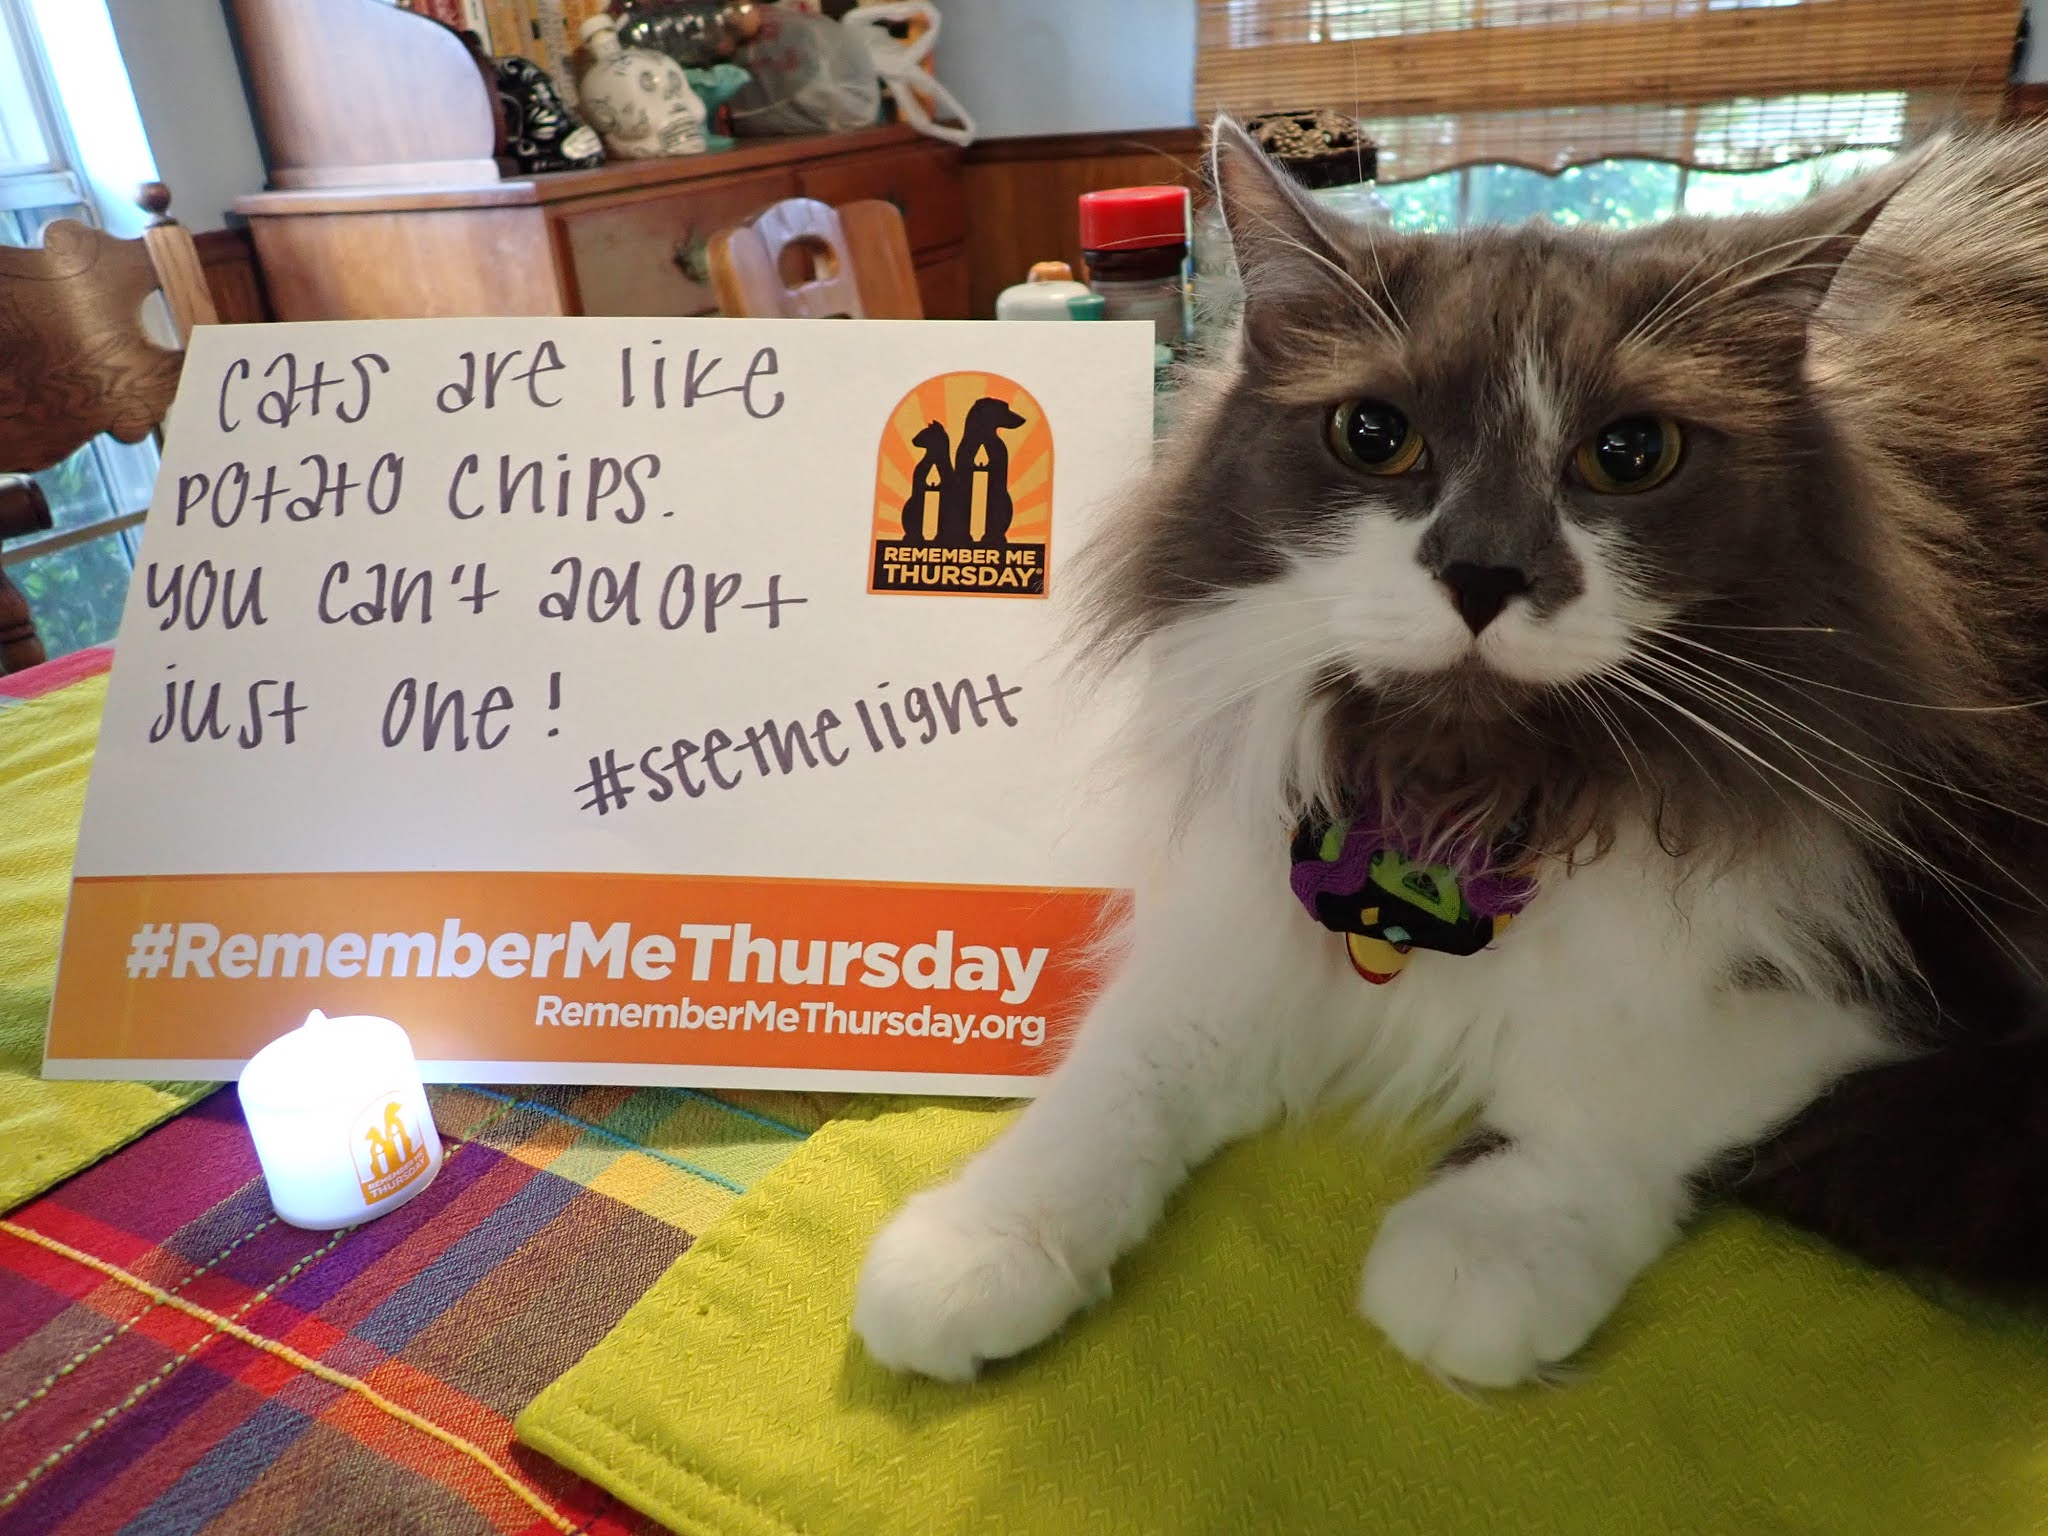 cats are like
potato chips.
you can't adopt
just one!
#seethelight
REMEMBER ME
THURSDAY®
#RememberMeThursday
RememberMeThursday.org
REMEMBER ME
THURSDAY